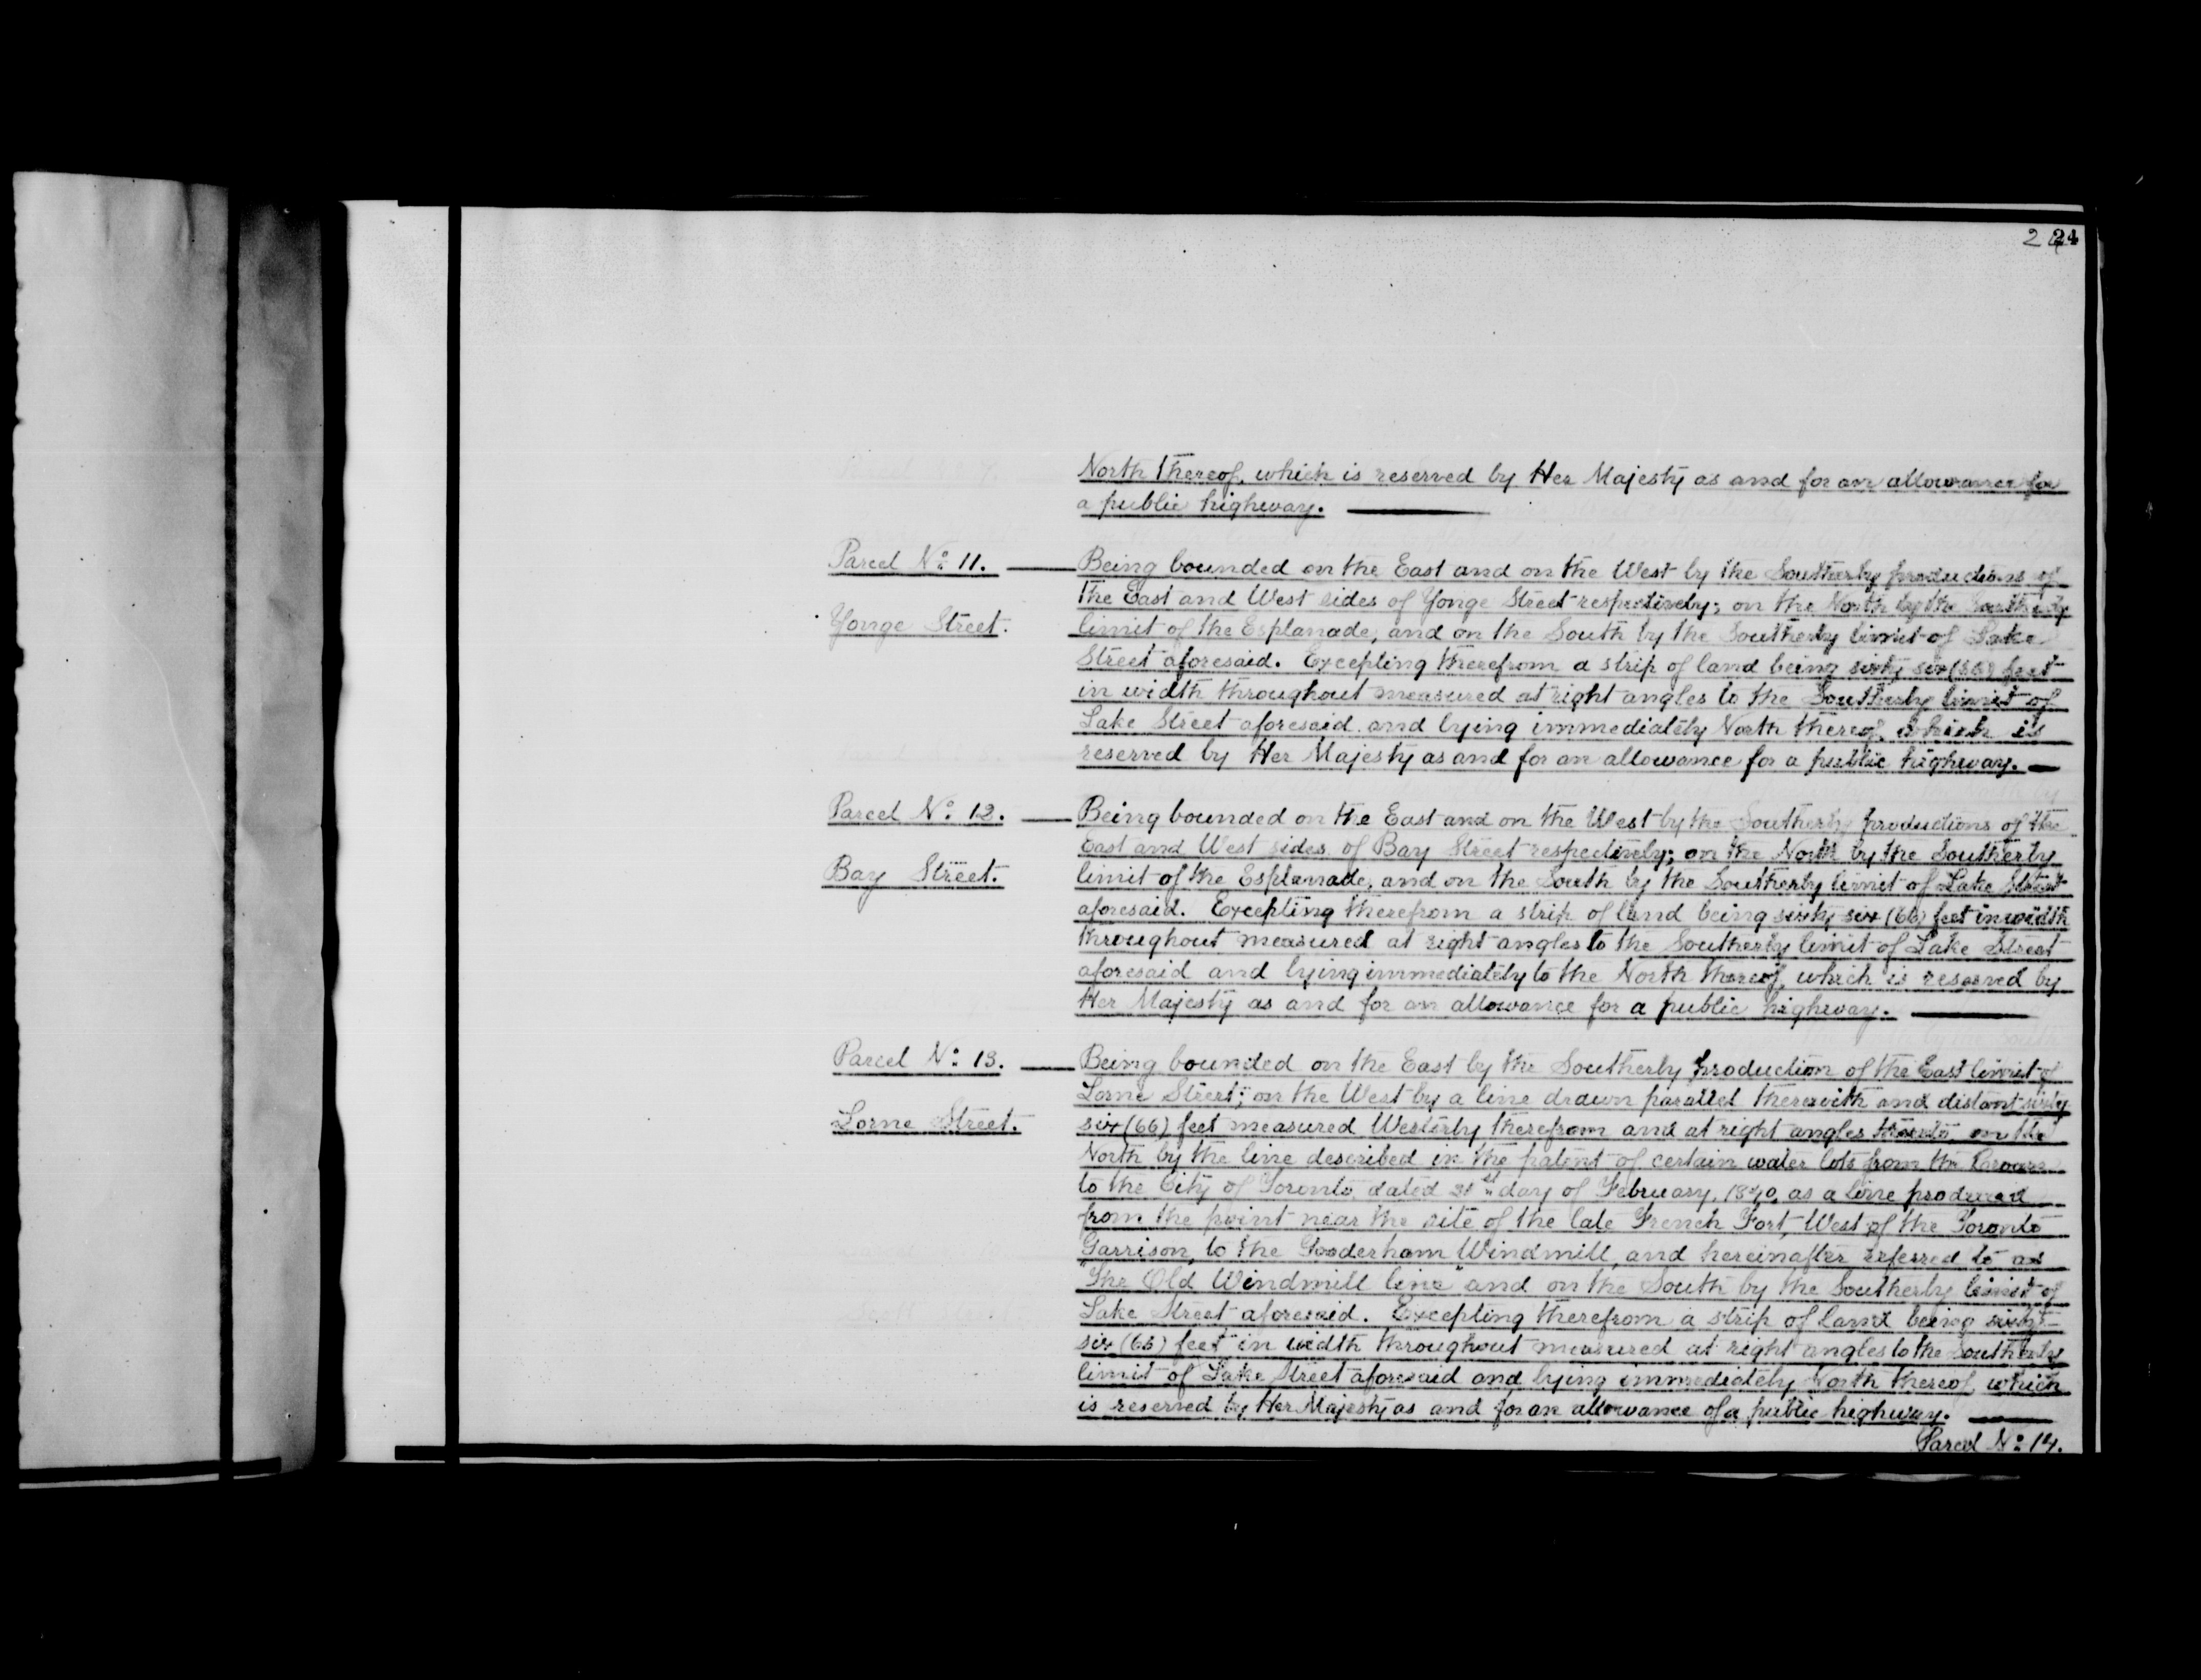 24
North thereof, which is reserved by Her Majesty as and for an allowance for
a public highway.
Parcel No: 11.
Yonge Street.
Being bounded on the East and on the West by the Southerly productions of
the East and West sides of Yonge Street respectively; on the North by the Southerly
limit of the Esplanade, and on the South by the Southerly limit of Lake
Street aforesaid. Excepting therefrom a strip of land being sixty six (66) feet
in width throughout measured at right angles to the Southerly limit of
Lake Street aforesaid and lying immediately North thereof, which is
reserved by Her Majesty as and for an allowance for a public highway.
Parcel No: 12.
Bay Street.
Being bounded on the East and on the West by the Southerly productions of the
East and West sides of Bay Street respectively; on the North by the Southerly
limit of the Esplanade, and on the South by the Southerly limit of Lake Street
aforesaid. Excepting therefrom a strip of land being sixty six (66) feet in width
throughout measured at right angles to the Southerly limit of Lake Street
aforesaid and lying immediately to the North thereof, which is reserved by
Her Majesty as and for an allowance for a public highway.
Parcel No: 13.
Lorne Street.
Being bounded on the East by the Southerly production of the East limit of
Lorne Street; on the West by a line drawn parallel therewith and distant sixty
six (66) feet measured Westerly therefrom and at right angles thereto on the
North by the line described in the patent of certain water lots from the Crown
to the City of Toronto, dated day of February, 1840, as a line produced
from the point near the site of the late French Fort, West of the Toronto
Garrison, to the Gooderham Windmill, and hereinafter referred to as
"The Old Windmill line" and on the South by the Southerly limit of
Lake Street aforesaid. Excepting therefrom a strip of land being sixty
six (66) feet in width throughout measured at right angles to the Southerly
limit of Lake Street aforesaid and lying immediately North thereof, which
is reserved by Her Majesty as and for an allowance of a public highway.
Parcel No: 14.